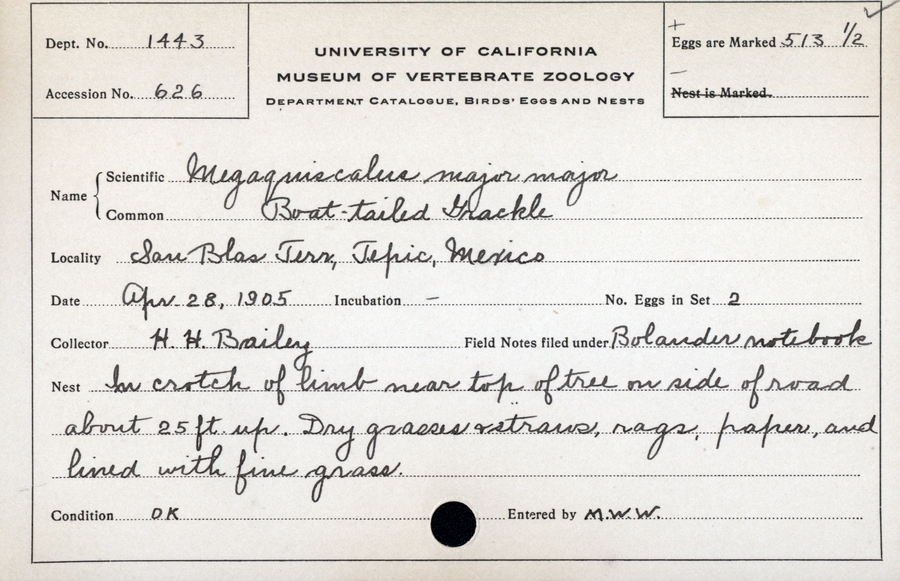 Dept. No. 1443
Accession No. 626
UNIVERSITY OF CALIFORNIA
MUSEUM OF VERTEBRATE ZOOLOGY
DEPARTMENT CATALOGUE, BIRDS' EGGS AND NESTS
+
Eggs are Marked 513 1/2
–
Nest is Marked.
Name { Scientific Megaquiscalus major major
Common Boat-tailed Grackle
Locality San Blas Terr, Tepic, Mexico
Date Apr 28, 1905 Incubation – No. Eggs in Set 2
Collector H. H. Bailey Field Notes filed under Bolander notebook
Nest In crotch of limb near top of tree on side of road
about 25 ft up. Dry grasses & straws, rags, paper, and
lined with fine grass.
Condition OK Entered by M.W.W.